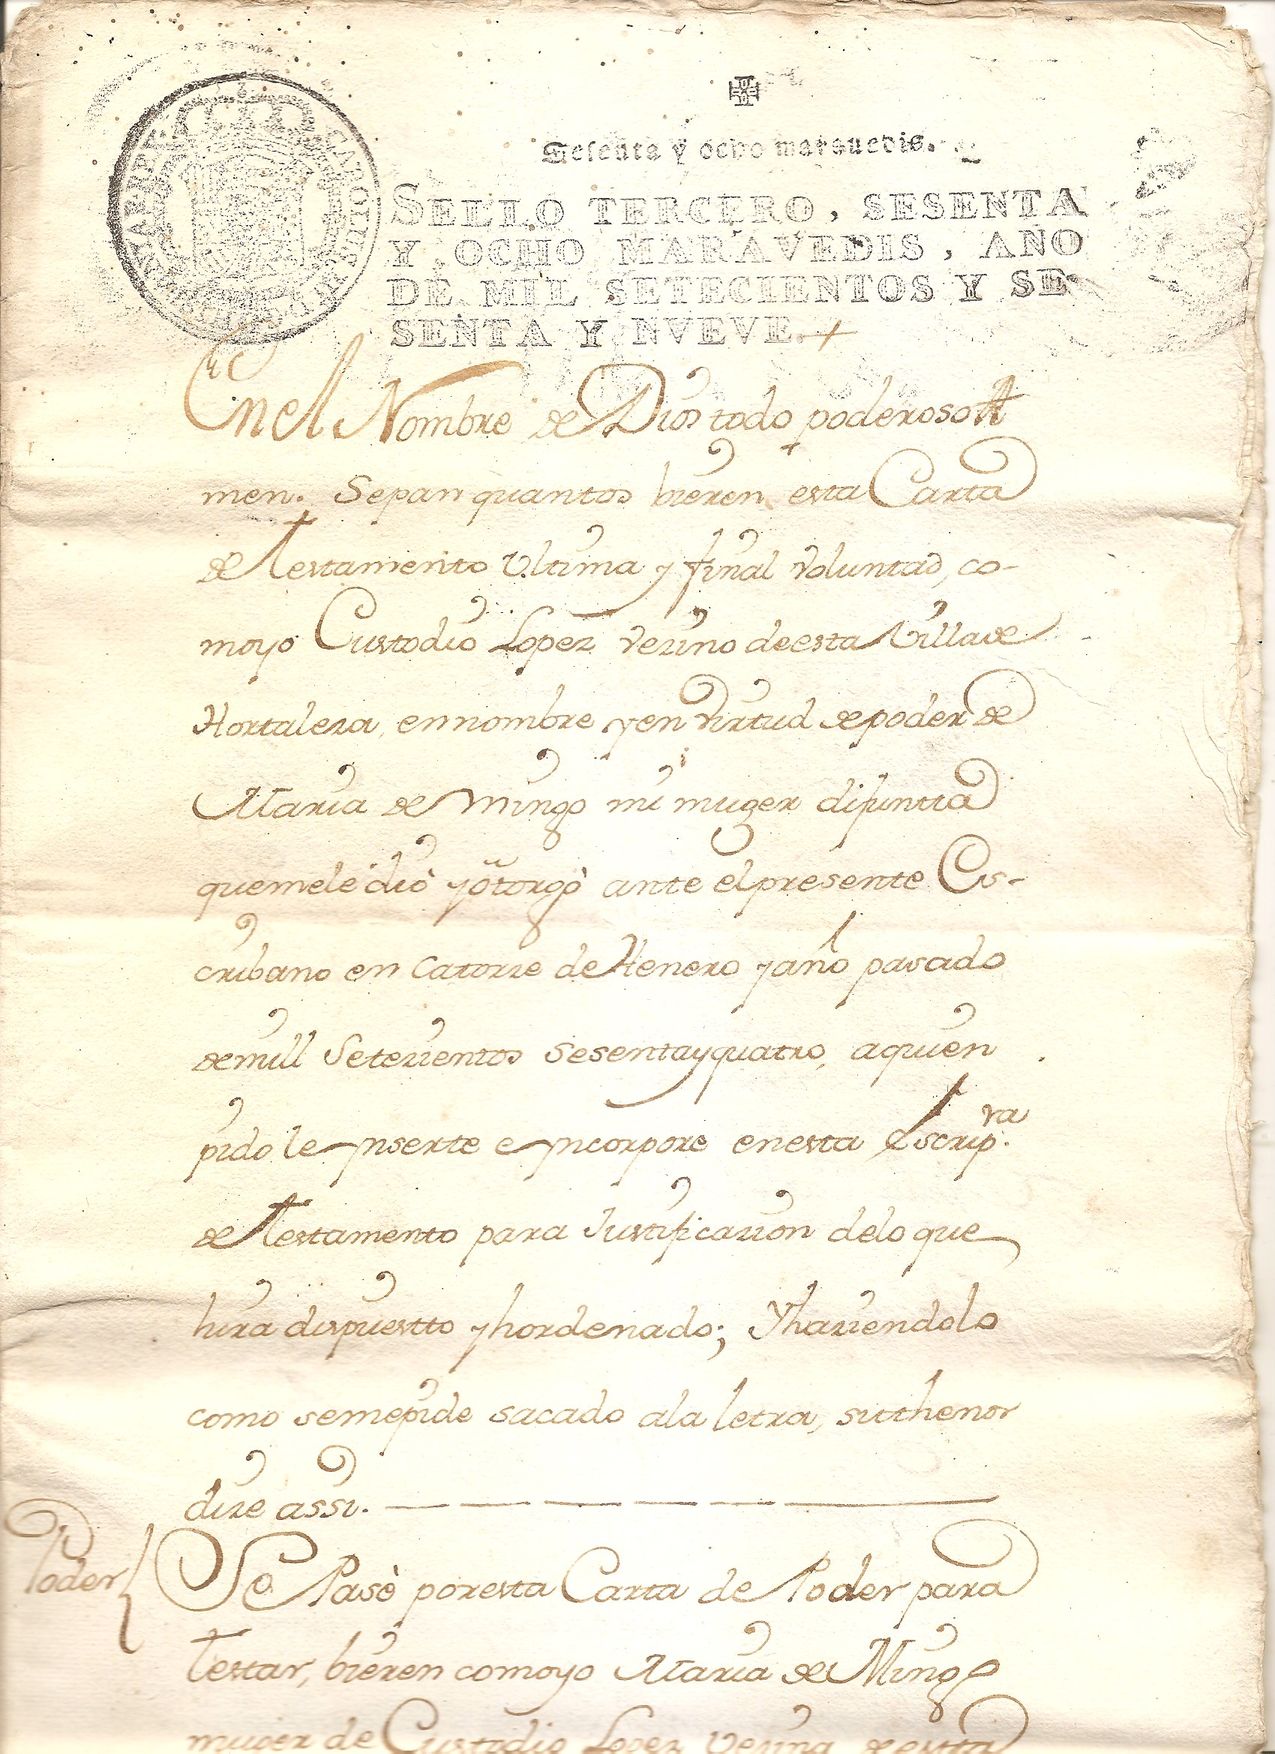 Sesenta y ocho marauedis.
SELLO TERCERO, SESENTA
Y OCHO MARAVEDIS, AÑO
DE MIL SETECIENTOS Y SE
SENTA Y NVEVE.
En el Nombre de Dios todo poderoso A
men. Sepan quantos bieren esta Carta
de Testamento Ultima y final voluntad, co-
moyo Custodio Lopez vezino deesta Villa de
Hortaleza, ennombre yen virtud depoder de
Maria de Mingo mi muger difuntta
quemele dio yotorgò ante elpresente Es-
cribano en Catorze de Henero yaño pasado
demill Setezientos Sesentayquatro, aquien
pido le Ynserte e Yncorpore enesta Escrip.ra
de Testamento para Justificazion delo que
hira dispuestto yhordenado; Yhaziendolo
como semepide sacado ala letra, sutthenor
dize assi.
Poder
Se Pasè poresta Carta de Poder para
Testar, bieren comoyo Maria de Mingo
muger de Custodio Lopez Vezina deestta